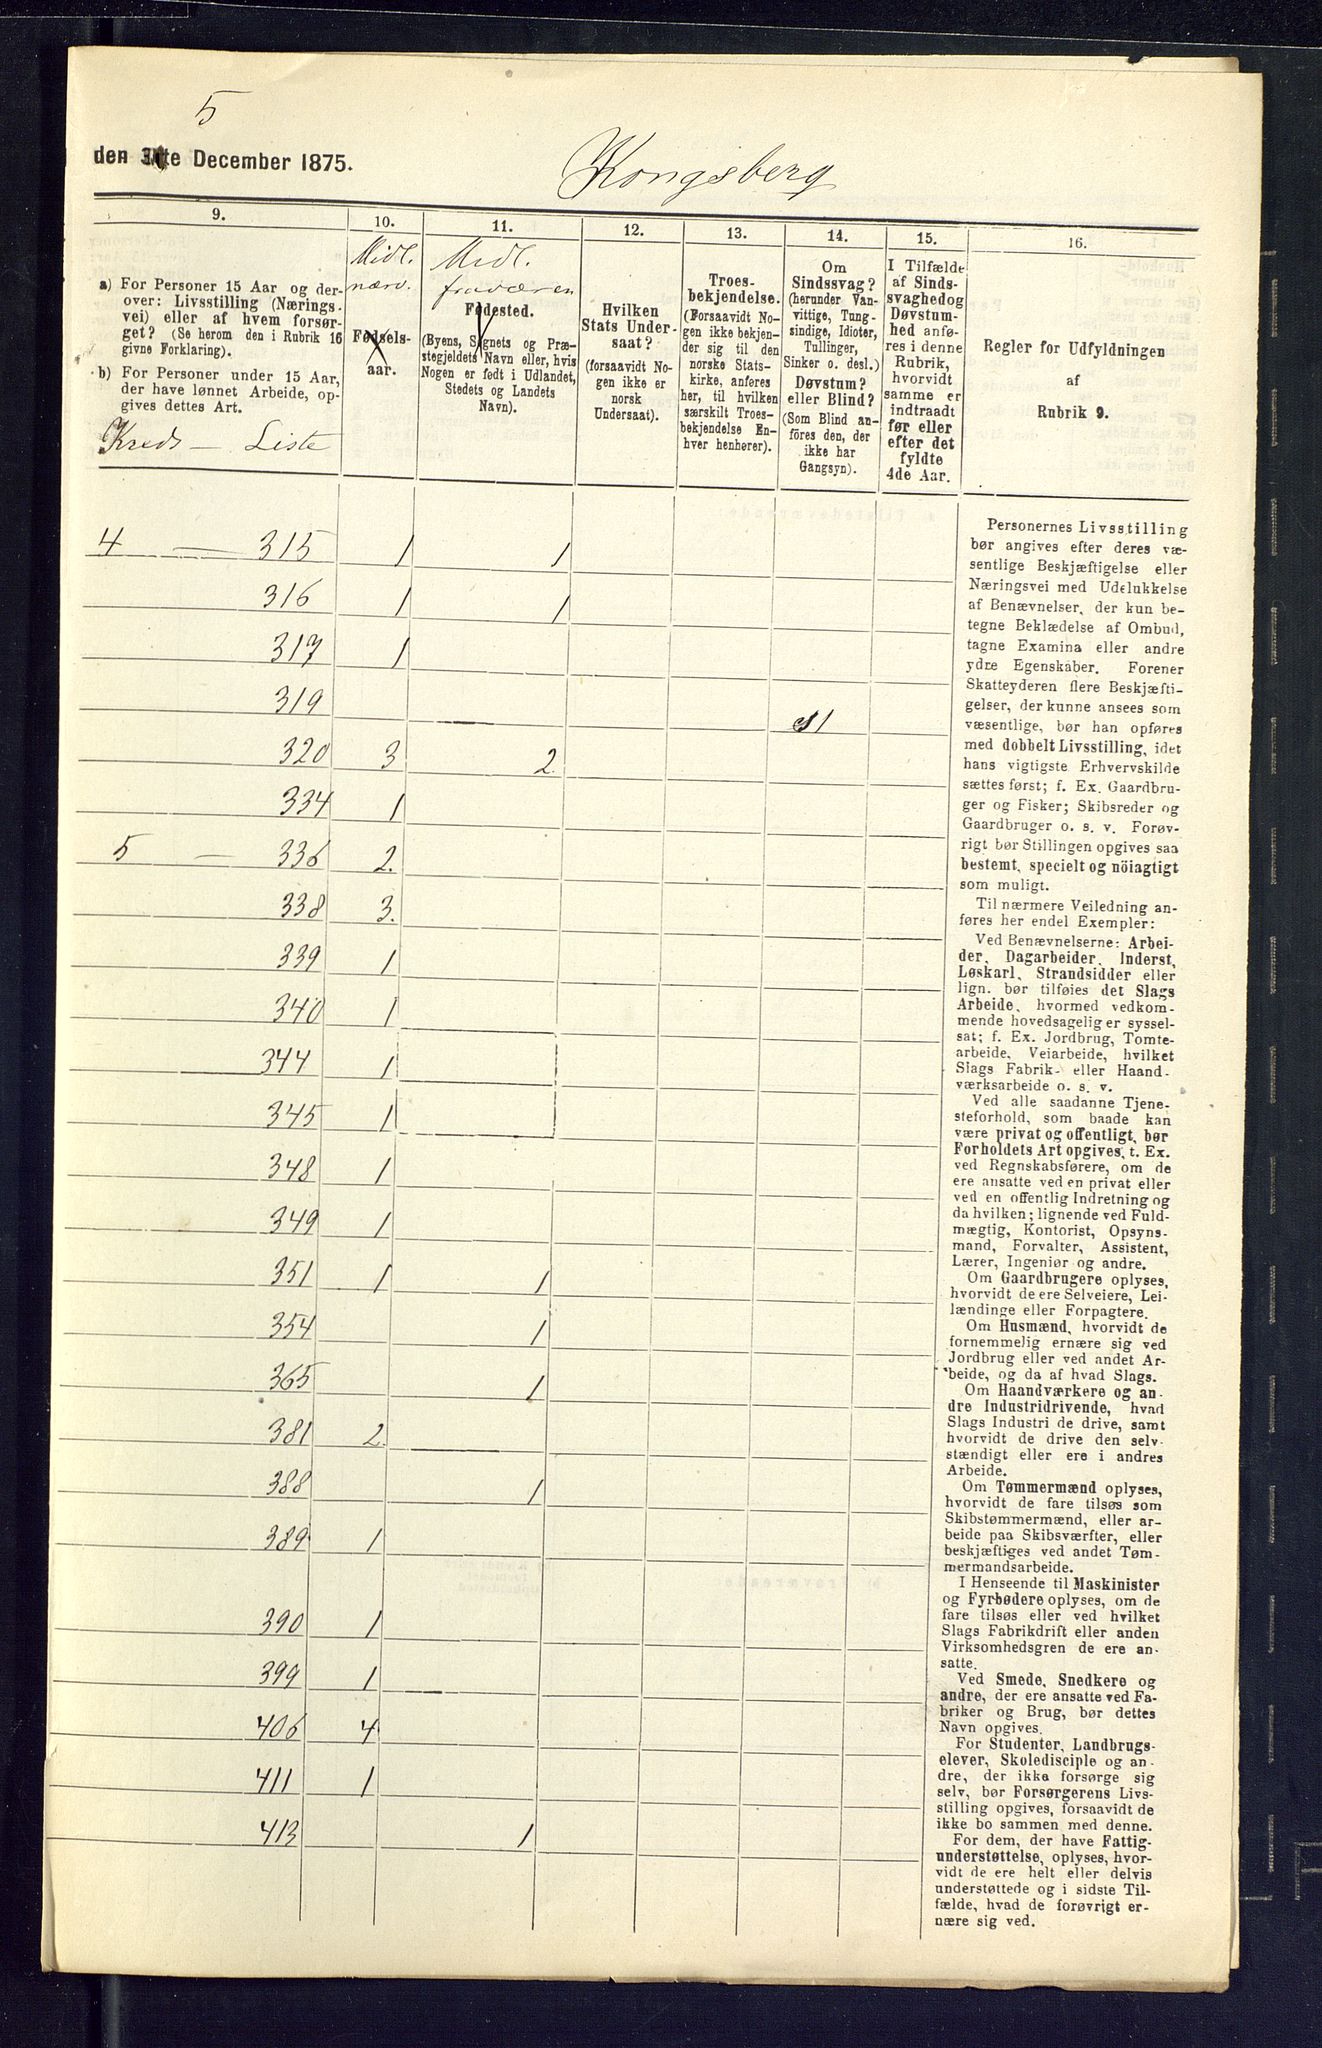 5
den 31te December 1875.
Kongsberg
9.
10.
11.
12.
13.
14.
15.
16.
a) For Personer 15 Aar og der-
over: Livsstilling (Nærings-
vei) eller af hvem forsør-
get? (Se herom den i Rubrik 16
givne Forklaring).
b) For Personer under 15 Aar,
der have lønnet Arbeide, op-
gives dettes Art.
Kreds — Liste
Midl.
nærv.
Fødsels-
aar.
Midl.
fraværen
Fødested.
(Byens, Sognets og Præ-
stegjeldets Navn eller, hvis
Nogen er født i Udlandet,
Stedets og Landets
Navn).
Hvilken
Stats Under-
saat?
(forsaavidt No-
gen ikke er
norsk
Undersaat).
Troes-
bekjendelse.
(Forsaavidt No-
gen ikke bekjen-
der sig til den
norske Stats-
kirke, anføres
her, til hvilken
særskilt Troes-
bekjendelse En-
hver henhører).
Om
Sindssvag?
(herunder Van-
vittige, Tung-
sindige, Idioter,
Tullinger,
Sinker o. desl.)
Døvstum?
eller Blind?
(Som Blind an-
føres den, der
ikke har
Gangsyn).
I Tilfælde
af Sinds-
svaghedog
Døvstum-
hed anfø-
res i denne
Rubrik,
hvorvidt
samme er
indtraadt
før eller
efter det
fyldte
4de Aar.
Regler for Udfyldningen
af
Rubrik 9.
4 — 315 1 1
316 1 1
317 1
319 1
320 3 2
334 1
5 — 336 2.
338 3.
339 1
340 1
344 1
345 1
348 1
349 1
351 1 1
354 1
365 1
381 2
388 1
389 1
390 1
399 1
406 4
411 1
413 1
Personernes Livsstilling
bør angives efter deres væ-
sentlige Beskjæftigelse eller
Næringsvei med Udelukkelse
af Benævnelser, der kun be-
tegne Beklædelse af Ombud,
tagne Examina eller andre
ydre Egenskaber. Forener
Skatteyderen flere Beskjæfti-
gelser, der kunne ansees som
væsentlige, bør han opføres
med dobbelt Livsstilling, idet
hans vigtigste Erhvervskilde
sættes først; f. Ex. Gaardbru-
ger og Fisker; Skibsreder og
Gaardbruger o. s. v. Forøv-
rigt bør Stillingen opgives saa
bestemt, specielt og nöiagtigt
som muligt.
Til nærmere Veiledning an-
føres her endel Exempler:
Ved Benævnelserne: Arbei-
der, Dagarbeider, Inderst,
Løskarl, Strandsidder eller
lign. bør tilføies det Slags
Arbeide, hvormed vedkom-
mende hovedsagelig er syssel-
sat; f. Ex. Jordbrug, Tomte-
arbeide, Veiarbeide, hvilket
Slags Fabrik- eller Haand-
værksarbeide o. s. v.
Ved alle saadanne Tjene-
steforhold, som baade kan
være privat og offentligt, bør
Forholdets Art opgives, t. Ex.
ved Regnskabsførere, om de
ere ansatte ved en privat eller
ved en offentlig Indretning og
da hvilken; lignende ved Fuld-
mægtig, Kontorist, Opsyns-
mand, Forvalter, Assistent,
Lærer, Ingeniør og andre.
Om Gaardbrugere oplyses,
hvorvidt de ere Selveiere, Lei-
lændinge eller Forpagtere.
Om Husmænd, hvorvidt de
fornemmelig ernære sig ved
Jordbrug eller ved andet Ar-
beide, og da af hvad Slags.
Om Haandværkere og an-
dre Industridrivende, hvad
Slags Industri de drive, samt
hvorvidt de drive den selv-
stændigt eller ere i andres
Arbeide.
Om Tømmermænd oplyses,
hvorvidt de fare tilsøs som
Skibstømmermænd, eller ar-
beide paa Skibsværfter, eller
beskjæftiges ved andet Tøm-
mermandsarbeide.
I Henseende til Maskinister
og Fyrbødere oplyses, om de
fare tilsøs eller ved hvilket
Slags Fabrikdrift eller anden
Virksomhedsgren de ere an-
satte.
Ved Smede, Snedkere og
andre, der ere ansatte ved Fa-
briker og Brug, bør dettes
Navn opgives.
For Studenter, Landbrugs-
elever, Skoledisciple og an-
dre, der ikke forsørge sig
selv, bør Forsørgerens Livs-
stilling opgives, forsaavidt de
ikke bo sammen med denne.
For dem, der have Fattig-
understøttelse, oplyses, hvor-
vidt de ere helt eller delvis
understøttede og i sidste Til-
fælde, hvad de forøvrigt er-
nære sig ved.